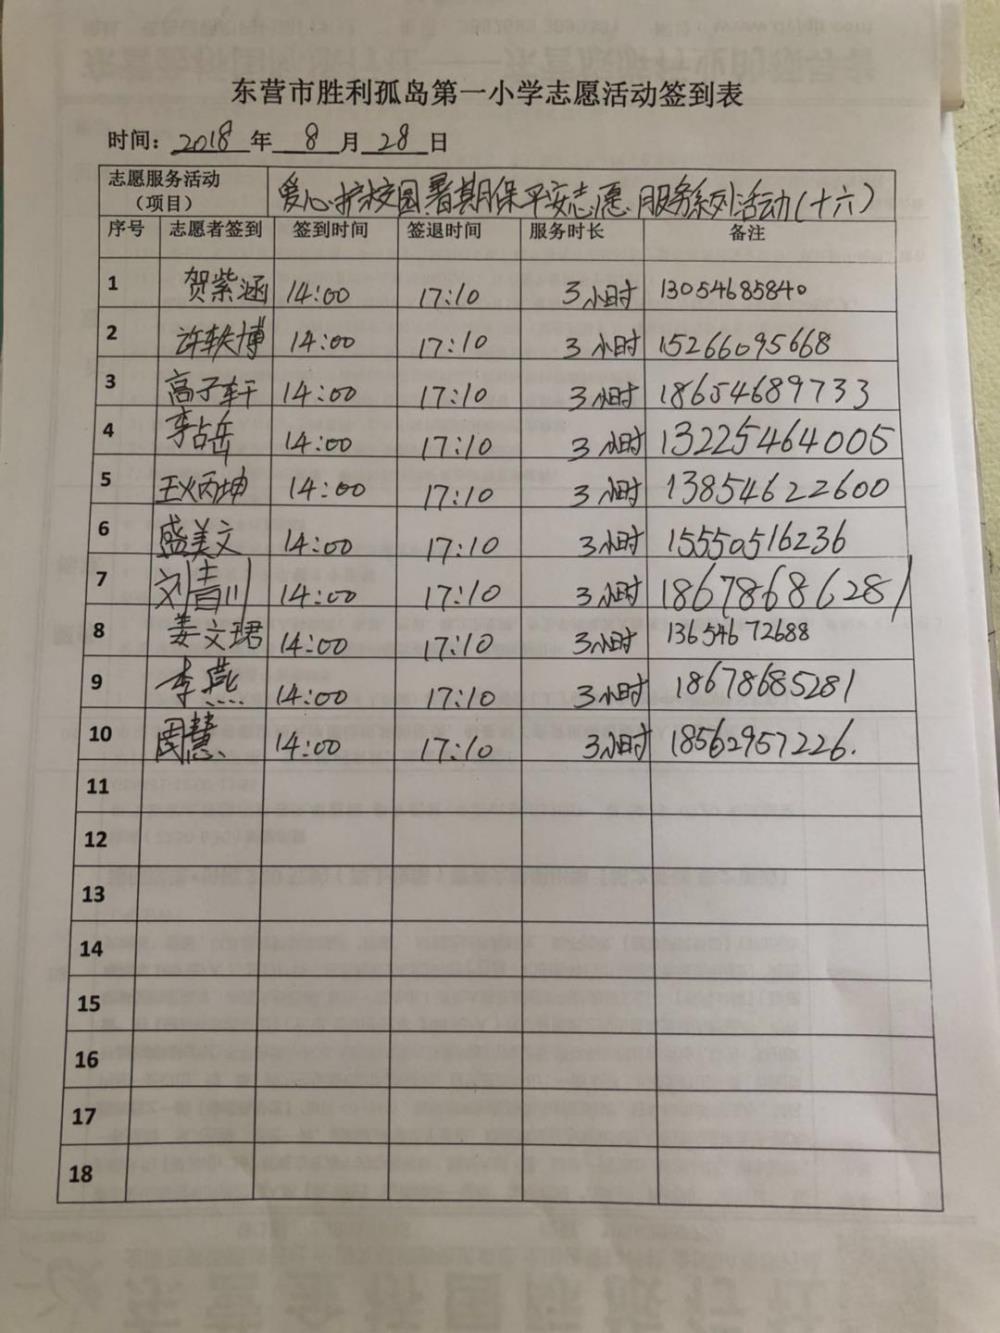 东营市胜利孤岛第一小学志愿活动签到表
时间：2018年 8 月 28 日
志愿服务活动（项目） 爱心护校园暑期保平安志愿服务系列活动(十六)
序号 志愿者签到 签到时间 签退时间 服务时长 备注
1 贺紫涵 14:00 17:10 3小时 13054685840
2 许轶博 14:00 17:10 3小时 15266095668
3 高子轩 14:00 17:10 3小时 18654689733
4 李占岳 14:00 17:10 3小时 13225464005
5 王炳坤 14:00 17:10 3小时 13854622600
6 盛美文 14:00 17:10 3小时 15550516236
7 14:00 17:10 3小时 18678686281
8 姜文珺 14:00 17:10 3小时 13654672688
9 李燕 14:00 17:10 3小时 18678685281
10 周慧 14:00 17:10 3小时 18562957226.
11
12
13
14
15
16
17
18